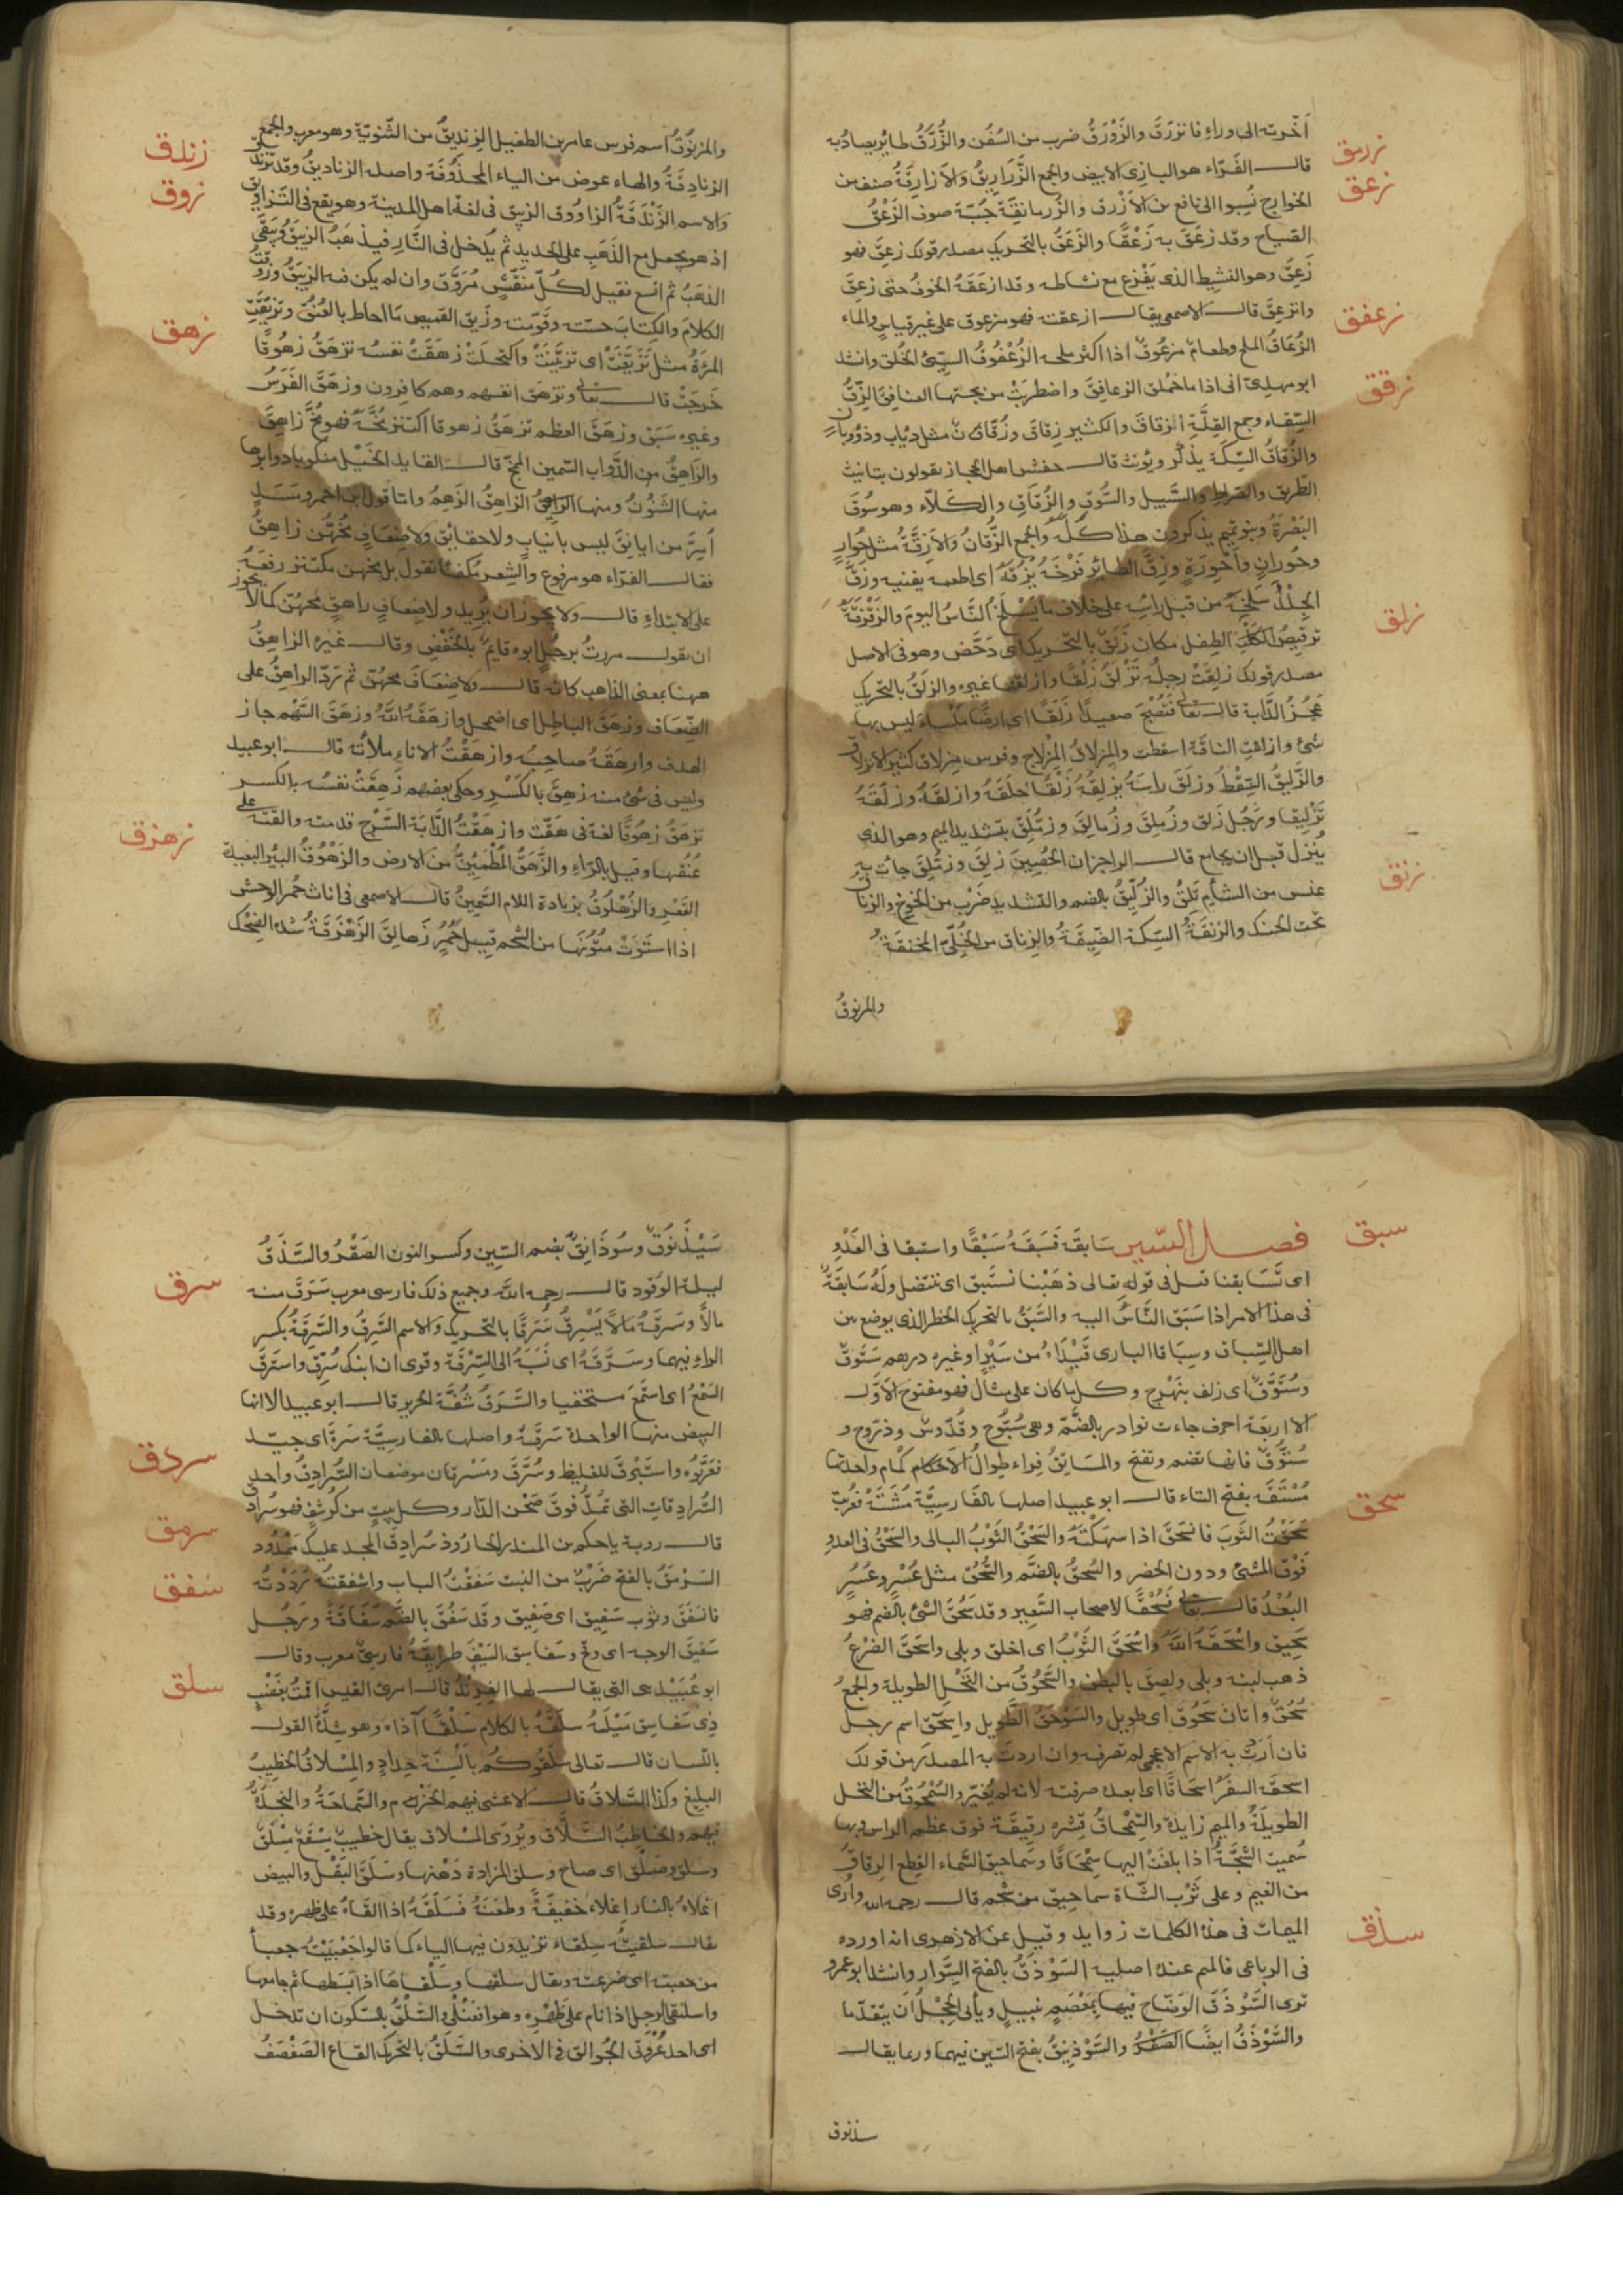 أخّرته الى وراءِ فانزرَقَ والزَوْرَقُ ضرب من السُفُن والزُرَّقُ طائر يصاد به
زرمق
قال الفَرّاء هو البازى الابيض والجمع الزَّرَارِيقُ وَالاَزارِقَةُ صنف من
زعق
الخوارج نُسِبوا الى نافع بن الاَزْرق والزُرمانقَةُ جُبّة صوف الزَعْقُ
الصياح وقد زعَقَ به زَعْقًا والزَعَقُ بالتحريك مصدر قولك زعِقَ فهو
زَعِقٌ وهو النشيط الذى يَفْزع مع نشاطه وقد ازعَقَهُ الخوفُ حتى زعِقَ
وانزعِقَ قال الاصمعى يقال ازعقته فهو مزعوق على غير قياسٍ والماء
زعفق
الزُعَاقُ الملح وطعام مزعُوقٌ اذا اكثر ملحه الزُعْفُوقُ السيّئ الخُلق وانشد
ابو مهدىّ انى اذا ما حَمْلق الزعافِقَ واضطربَتْ من تحتها العنافِقَ الزِقُّ
زقق
السِّقاء وجمع القِلَّةِ ازقاقٌ والكثير زِقاقٌ وزُقّانٌ مثل ذياب وذؤبانٍ
والزُقاقُ السِّكّة يذكّر ويؤنث قال اخفش اهل الحجاز يقولون بتانيث
الطّريق والصِّراط والسَّبيل والسُّوق والزُقاقِ والكَلّاء وهو سُوقُ
البَصْرَةِ وبنو تميم يذكرون هذا كلّهُ والجمع الزُقّانُ وَالاَزِقَّةُ مثل حُوارٍ
وحُورانٍ وأَحْوِرَةٍ وزقَّ الطائر فَرْخَهُ يَزُقّهُ اى اطعمه بفيه وزقَّ
الجِلْدَ سَلَخَهُ من قبل رأسِهِ على خلاف ما يَسْلَخُ النَّاسُ اليومَ والزَقْزقةُ
زلق
ترقيصُ الطِفل مكان زَلَقٌ بالتحريك اى دَحْضٌ وهو فى الاصل
مصدر قولك زلِقَتْ رجلُهُ تَزْلَقُ زَلَقًا وازلقها غيره والزلَقُ بالتحريك
عَجُزُ الدَّابة قال تعالى فَتُصْبحَ صعيدًا زَلَقًا اى ارضًا مَلْسَاءَ ليس بها
شئ وازلقت الناقة اسقطت والمِزلاقُ المِزْلاج وفرس مِزلاق كثير الازلاق
والزَّلِيقُ السِّقْطُ وزلَقَ راسَهُ يزلِقُهُ زَلْقًا حَلَقَهُ وازلقهُ وزلّقَهُ
تَزْلِيقًا ورَجُل زَلق وزُمَلِقٌ وزُمالِقٌ وزُمَّلِقٌ بتشديد الميم وهو الذى
زنق
يُنزل قبل ان يجامع قال الراجز ان الحُصَيْنَ زلِقٌ وزُمَّلِقُ جاءت به
عنس من الشأم تَلِقُ والزُلَّيْقُ بالضم والتشديد ضَرْب من الخوخ والزناق
تحت الحنك والزنقَةُ السِّكة الضيِّقَةُ والزِناق من الحُلِىّ المخنقةُ
والمزنوقُ
والمزنُوْقُ اسم فرس عامر بن الطفيل الزنديقُ من الثّنويّة وهو معرب والجمع
زندق
الزنادِقةُ والهاء عوض من الياء المحذُوفَة واصله الزناديقُ وقد تزندقَ
زوق
وَالاسم الزَنْدَقَةُ الزاوُوق الزيبق فى لغة اهل المدينة وهو يقع فى التّزاويق
اذ هو يجعل مع الذَهَبِ على الحديد ثم يُدخل فى النَّارِ فيذهَبُ الزيبق ويَبقَى
الذهَبُ ثم اتسع فقيل لكُلّ منَقَّشٍ مُزَوَّقٌ وان لم يكن فيه الزيبَقُ وزَوَّقتُ
الكلامَ والكِتابَ حسّنته وقَوّمته وزيقُ القميص ما احاط بالعُنُقِ وتَزَيَّقَتِ
زهق
المرْءَةُ مثل تَزَيَّغَتْ اى تزيَّنَتْ واكتحلَتْ زهَقَتْ نفسُه تزهَقُ زهُوقًا
خَرجَتْ قال تعالى وتزهَقَ انفسهم وهم كافِرون وزهَقَ الفَرَسُ
وغيره سَبَقَ وزهَقَ العظم تزهَقُ زهوقا اكتنز مُخُّهُ فهو مُخٌّ زاهِقٌ
والزاهِقُ من الدَّوابِ السّمين المخّ قال القايد الخَيْل منكوبا دوابرُها
منها الشَنُوْنُ ومنها الزاهِقُ الزَهِمُ وامّا قول احمر وَسَدَلٍ
اُمِرَّ من ايانِقَ ليس بانيابٍ ولا حقائقٍ وَلاضِعَافٍ مُخُّهنَّ زاهِقُ
فقال الفَرّاء هو مرفوع والشِعر مُكفَأٌ تقول بل مخهن مكتنز رفعَهُ
على الابتداءِ قال ولا يجوز ان يُريد ولاضِعافٍ زاهقٍ مخهُنّ كما لا يجوز
ان تقول مررتُ برجُلٍ ابوه قايمٍ بالخَفْضِ وقال غيره الزاهِقُ
ههنا بمعنى الذاهب كانه قال وَلاضِعَافَ مخهُنّ ثم تردّ الزاهِقُ على
الضِّعَاف وزهَقَ الباطِل اى اضمحل وازهقَهُ اللَّهُ وزهَقَ السَّهْم جاز
الهدف وازهقَهُ صاحِبُه وازهَقْتُ الاناءَ ملأتُه قال ابو عبيد
وليس فى شئ منه زهِقَ بالكَسْرِ وحكى بعضهم زَهِقَتْ نفسُه بالكسر
تزهَقُ زهُوقًا لغة فى هَقَتْ وازهَقْتُ الدَّابَة السَّرْج قدمته والقته على
زهزق
عُنُقها وقيل بالرّاءِ والزَّهَقُ المُطْمَئِنُّ من الارض والزَهُوْقُ البئر البعيدة
القعْرِ والزُهْلُوقُ بزيادة اللام السَّمِينُ قال الاصمعى فى اناث حُمر الوحش
اذا استَوَتْ مُتُوْنَها من الشَحْم قيل حُمُرٌ زَهالِقُ الزَهْزَقَةُ شدة الضِحْك
سبق
فصل السّين سَابَقَهُ فَسَبَقَهُ سَبْقًا واستبقا فى العَدْوِ
اى تَسَابقنا قيل فى قوله تعالى ذهَبْنا نستَبِق اى ننتضل ولَهُ سَابقَةٌ
فى هذا الامر اذا سَبَق النَّاسُ اليه والسَّبَقُ بالتحريك الخطر الذى يوضع بين
اهل السِّباق وسِبَاقا البازى قَيْدَاهُ من سَيْرٍ او غيره درهم سَتُّوقٌ
وسُتُوّقٌ اى زلف بَهْرج وكل ما كان على مثال فهو مفتوح الاَوَّل
الا اربعَة احرف جاءت نوادر بالضَمّة وهى سُبُّوح وقُدّوس وذرّوح و
سُتوَّقٌ فانها تضم وتفتح والمسَاتِقُ فِراء طِوالُ الاَكمام واحدتها
سحق
مُسْتَقَة بفتح التاء قال ابو عبيد اصلها بالفَارسِيَّة مُشَتَهْ فعُرّبتْ
سَحَقْتُ الثَوبَ فانسَحَقَ اذا سهكْتَهُ والسَحْقُ الثَوْبُ البالى والسَحْقُ فى العدوِ
فَوْقَ المشئ ودون الحضر والسُحقُ بالضَّم والسُّحُق مثل عُسْرٍ وعُسُرٍ
البُعْدُ قال تعالى فَسُحْقًا لاصحاب السَّعِير وقد سَحُقَ الشئ بالضم فهو
سَحِيق واسْحَقَهُ اللَّهُ واسْحَقَ الثَوْبُ اى اخلق وبلى واسحَقَ الضَرْعُ
ذهب لبنه وبلى ولصِقَ بالبطن والسَّحُوقُ من النَّخْل الطويلة والجمعُ
سُحُقٌ واتان سَحُوق اى طويل والسَوْحَقُ الطَّويل واسحق اسم رجل
فان اَردْتَ به الاسم الاعجمى لم تصرفه وان اردت به المصدَرَ من قولك
اسحقَهُ السفَرُ اسحَاقًا اى ابعده صرفته لانه لم يُغيّر والسُمْحُوقُ من النخل
الطويلةُ والميم زايدة والسِّمْحاقُ قِشره رقيقَة فوق عظم الراس وبها
سُميت الشجَّةُ اذا بلغت اليها سِمْحَاقًا وسَماحيق السَّماء القِطع الرقاق
من الغيم وعلى ثَرْبِ الشّاة سماحيق من شَحْم قال رحمه الله وأرى
سذق
الميمات فى هذه الكلمات زوايد وقيل عن الازهرى انه اورده
فى الرباعى فالميم عنده اصلية السَوْذَقُ بالفتح السِّوار وانشد ابو عمرو
ترى السَوْذَقَ الوَضّاح فيها بمِعْصَمٍ نبيلٍ ويأبى الحِجْلُ اَن يتقَدّما
والسَوْذَقُ ايضًا الصَقْرُ والسَوْذنِيقُ بفتح السّين فيهما وربما يقال
سيذنوق
سَيْذَنُوقٌ وسُوذَانِقٌ بضم السّين وكسر النون الصَقْرُ والسَّذَقُ
سرق
ليلة الوَقود قال رحمه اللَّه وجميع ذلك فارسى معرب سَرَقَ منه
مالاً وسَرقَهُ مَالاً يَسْرِقُ سَرَقًا بالتحريك وَالاسم السَّرِقُ والسَّرِقَةُ بكسر
الراءِ فيهما وسَرَّقهُ اى نَسَبَهُ الى السِّرْقَة وقرى ان ابنك سُرِّق واستَرَقَ
السَمْعَ اى استَمَعَ مستخفيا والسَّرَقُ شُقَقُ الحَرير قال ابو عبيد الا انها
البيض منها الواحدة سَرقَةٌ واصلها بالفارسيَّة سَرَهْ اى جيّد
سردق
فعرَّبُوه واستَبْرق للغليظ وسُرَّقٌ ومَسْرقان موضعان السُّرادِقُ واحد
السُّرادقات التى تُمدُّ فوق صَحْن الدّار وكل بيتٍ من كُرسُفٍ فهو سُرادق
سرمق
قال روبة يا حكم بن المنذر بن الجارُودْ سُرادِقُ المجد عليكَ مَمْدُود
سفق
السَرْمَقُ بالفتح ضَرْبٌ من النبت سَفَقْتُ الباب واسْفَقتُهُ رَدَدْتُه
فانسَفَقَ وثوب سَفِيق اى صَفِيق وقد سَفُقَ بالضَّم سَفَاقَةً ورَجُل
سَفيق الوجه اى وقح وسَفاسِق السَيْف طرايقُهُ فارسِىٌّ معرب وقال
سلق
ابو عُبَيْد هى التى يقال لها الفِرِنْدُ قال امرئ القيس اقمتُ بعَضْبٍ
ذِى سَفاسِق مَيْلَهُ سلَقَهُ بالكلام سَلْقًا آذاهُ وهو شدّةُ القول
باللّسان قال تعالى سَلَقُوكُم بالْسِنَةٍ حِدادٍ والمِسْلاقُ الخطيبُ
البليغ وكذا السَّلاقُ قال الاعشى فيهم الحَزْمُ والسَّماحَةُ والنجدةُ
فيهم والخاطِبُ السَّلّاقُ ويُرْوَى المِسْلاق يقال خطيب مِسْقَع مِسْلَق
وسلق وصلَق اى صاح وسلق المزادة دَهْنَها وسَلَقَ البَقْلَ والبيض
اغلاهُ بالنار اِغلاءً خفيفَةً وطعَنَهُ فسَلَقَهُ اذا القَاهُ على ظهره وقد
يقال سلقيتُه سِلْقاءً تزيدون فيها الياء كما قالوا جَعْبَيْتُه جعباءً
من جعبته اى صَرعته ويقال سلقها وسَلْقاها اذا بَسَطها ثم جامعها
واستلقى الرجل اذا نام على ظَهْرِه وهو افعَنْلَى والسَّلْقُ بالسكون ان تدخل
احد عُرْوَتَى الجُوالق فى الاخرى والسَّلَقُ بالتحريك القاع الصَفصَفُ